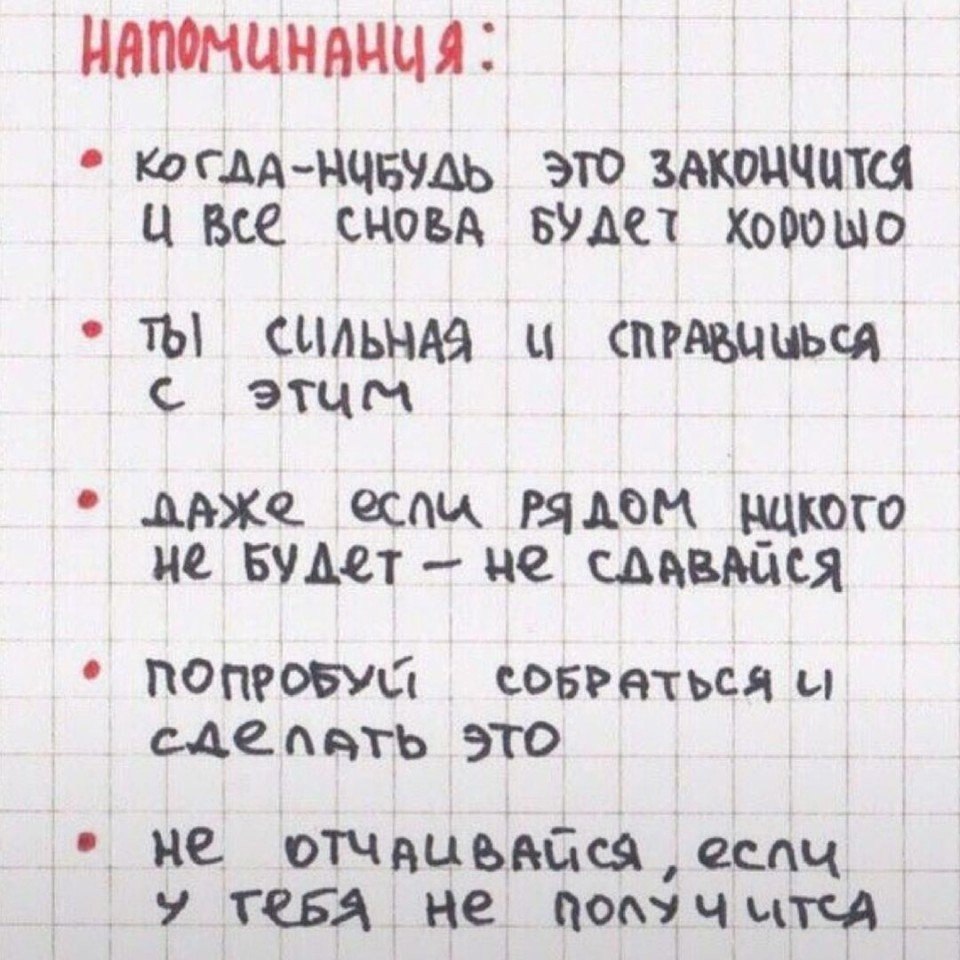 НАПОМИНАНИЯ:
• КОГДА-НИБУДЬ ЭТО ЗАКОНЧИТСЯ
И ВСЕ СНОВА БУДЕТ ХОРОШО
• ТЫ СИЛЬНАЯ И СПРАВИШЬСЯ
С ЭТИМ
• ДАЖЕ ЕСЛИ РЯДОМ НИКОГО
НЕ БУДЕТ – НЕ СДАВАЙСЯ
• ПОПРОБУЙ СОБРАТЬСЯ И
СДЕЛАТЬ ЭТО
• НЕ ОТЧАИВАЙСЯ, ЕСЛИ
У ТЕБЯ НЕ ПОЛУЧИТСЯ